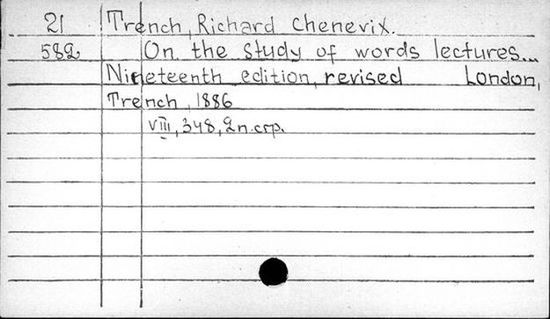 21 Trench, Richard Chenevix.
582 On the study of words lectures...
Nineteenth edition, revised London,
Trench, 1886
VIII, 348, 2 n.стр.